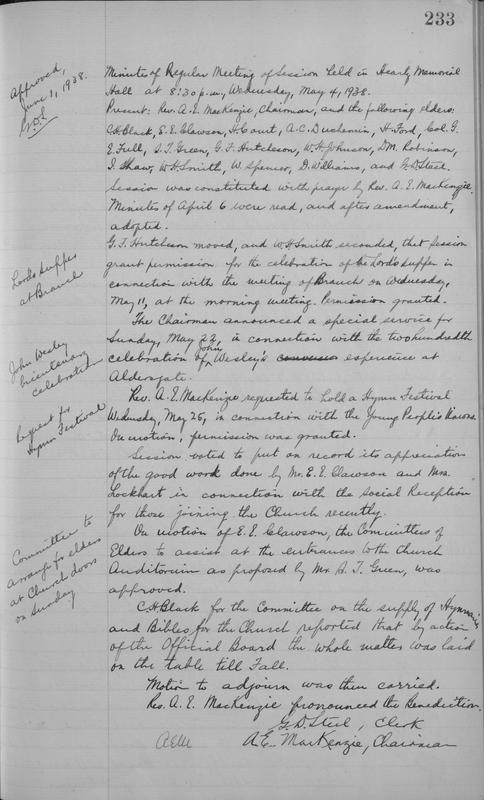 233
Approved,
June 1, 1938.
G.D.S.
Minutes of Regular Meeting of Session held in Hearty Memorial
Hall at 8:30 p.m., Wednesday, May 4, 1938.
Present: Rev. A. E. MacKenzie, Chairman, and the following elders:
C.H. Black, E.E. Clawson, H. Court, A.C. Duchemin, H. Ford, Col. G.
E. Full, S.T. Green, G.F. Hutcheson, W.H. Johnson, D.M. Robinson,
I. Shaw, W.H. Smith, W. Spencer, D. Williams, and G.D. Steel.
Session was constituted with prayer by Rev. A. E. MacKenzie.
Minutes of April 6 were read, and after amendment,
adopted.
Lord's Supper
at Branch
G.F. Hutcheson moved, and W.H. Smith seconded, that Session
grant permission for the celebration of the Lord's Supper in
connection with the meeting of Branch on Wednesday,
May 11, at the morning meeting. Permission granted.
John Wesley
bicentenary
celebration
The Chairman announced a special service for
Sunday, May 22, in connection with the two hundredth
celebration of John Wesley's experience at
Aldersgate.
Request for
Hymn Festival
Rev. A. E. MacKenzie requested to hold a Hymn Festival
Wednesday, May 25, in connection with the Young People's
On motion, permission was granted.
Session voted to put on record its appreciation
of the good work done by Mr. E. E. Clawson and Mrs.
Lockhart in connection with the Social Reception
for those joining the Church recently.
Committee to
arrange for elders
at Church doors
on Sunday
On motion of E. E. Clawson, the Committees of
Elders to assist at the entrances to the Church
Auditorium as proposed by Mr. S. T. Green, was
approved.
C.H. Black for the Committee on the supply of Hymnaries
and Bibles for the Church reported that by action
of the Official Board the whole matter was laid
on the table till Fall.
Motion to adjourn was then carried.
Rev. A. E. MacKenzie pronounced the Benediction.
G.D. Steel, Clerk
A. E. MacKenzie, Chairman